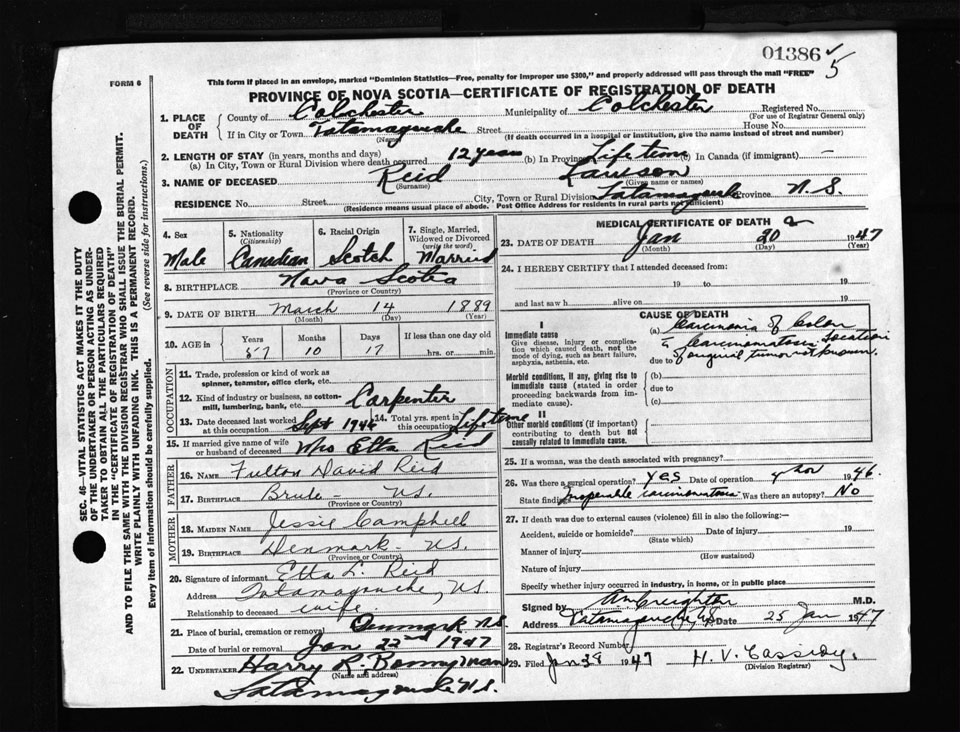 01386 ✓
5
FORM 6
This form if placed in an envelope, marked "Dominion Statistics—Free, penalty for improper use $300," and properly addressed will pass through the mail "FREE"
PROVINCE OF NOVA SCOTIA—CERTIFICATE OF REGISTRATION OF DEATH
1. PLACE OF DEATH County of Colchester Municipality of Colchester Registered No.
(For use of Registrar General only)
If in City or Town Tatamagouche Street House No.
(Name) (If death occurred in a hospital or institution, give the name instead of street and number)
2. LENGTH OF STAY (in years, months and days)
(a) In City, Town or Rural Division where death occurred 12 years (b) In Province Lifetime (c) In Canada (if immigrant) —
3. NAME OF DECEASED Reid Lawson
(Surname) (Given name or names)
RESIDENCE No. Street City, Town or Rural Division Tatamagouche Province N.S.
(Residence means usual place of abode. Post Office Address for residents in rural parts not sufficient)
4. Sex Male
5. Nationality (Citizenship) Canadian
6. Racial Origin Scotch
7. Single, Married, Widowed or Divorced (write the word) Married
8. BIRTHPLACE Nova Scotia
(Province or Country)
9. DATE OF BIRTH March 14 1889
(Month) (Day) (Year)
10. AGE in Years Months Days If less than one day old
57 10 17 hrs. or min.
OCCUPATION
11. Trade, profession or kind of work as spinner, teamster, office clerk, etc.
12. Kind of industry or business, as cotton-mill, lumbering, bank, etc. Carpenter
13. Date deceased last worked at this occupation Sept 1946 14. Total yrs. spent in this occupation Lifetime
15. If married give name of wife or husband of deceased Mrs Etta Reid
FATHER
16. NAME Fulton David Reid
17. BIRTHPLACE Brule - N.S.
MOTHER
18. MAIDEN NAME Jessie Campbell
19. BIRTHPLACE Denmark - N.S.
(Province or Country)
20. Signature of informant Etta L. Reid
Address Tatamagouche, N.S.
Relationship to deceased wife
21. Place of burial, cremation or removal Denmark N.S.
Date of burial or removal Jan 22nd 1947
22. UNDERTAKER Harry R. Bonnyman
(Name and address)
Tatamagouche N.S.
MEDICAL CERTIFICATE OF DEATH
23. DATE OF DEATH Jan 20 1947
(Month) (Day) (Year)
24. I HEREBY CERTIFY that I attended deceased from:
19 to 19
and last saw h alive on 19
CAUSE OF DEATH
I
Immediate cause
Give disease, injury or complication which caused death, not the mode of dying, such as heart failure, asphyxia, asthenia, etc.
(a) Carcinoma of Colon
Carcinomatosis location
due to of original tumor not known.
Morbid conditions, if any, giving rise to immediate cause (stated in order proceeding backwards from immediate cause).
(b)
due to
(c)
II
Other morbid conditions (if important) contributing to death but not causally related to immediate cause.
25. If a woman, was the death associated with pregnancy?
26. Was there a surgical operation? Yes Date of operation Nov 1946.
State findings Inoperable carcinomatosis Was there an autopsy? No
27. If death was due to external causes (violence) fill in also the following:—
Accident, suicide or homicide? Date of injury 19
(State which)
Manner of injury
(How sustained)
Nature of injury
Specify whether injury occurred in industry, in home, or in public place
Signed by Creighton M.D.
Address Tatamagouche, N.S. Date 25 Jan 1947
28. Registrar's Record Number
29. Filed Jan 28 1947 H. V. Cassidy.
(Division Registrar)
SEC. 46—VITAL STATISTICS ACT MAKES IT THE DUTY
OF THE UNDERTAKER OR PERSON ACTING AS UNDER-
TAKER TO OBTAIN ALL THE PARTICULARS REQUIRED
IN THE "CERTIFICATE OF REGISTRATION OF DEATH"
AND TO FILE THE SAME WITH THE DIVISION REGISTRAR WHO SHALL ISSUE THE BURIAL PERMIT.
WRITE PLAINLY WITH UNFADING INK. THIS IS A PERMANENT RECORD.
Every item of information should be carefully supplied. (See reverse side for instructions.)